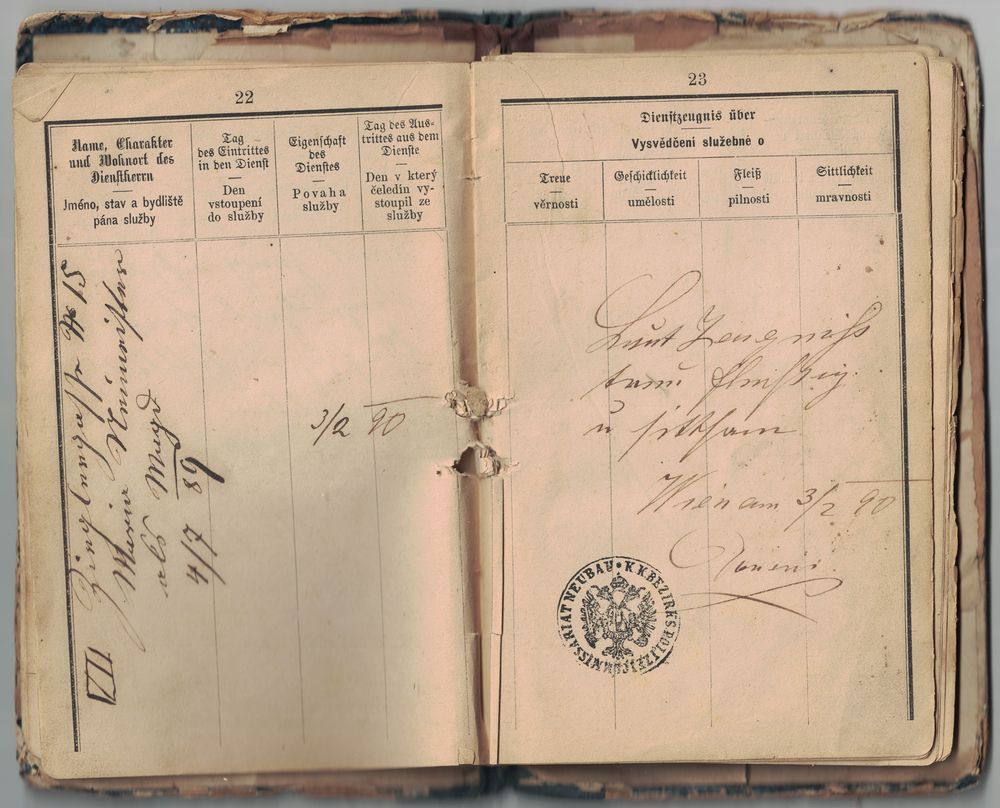 22
Name, Charakter
und Wohnort des
Dienstherrn
Jméno, stav a bydliště
pána služby
Tag
des Eintrittes
in den Dienst
Den
vstoupení
do služby
Eigenschaft
des
Dienstes
Povaha
služby
Tag des Aus-
trittes aus dem
Dienste
Den v který
čeledín vy-
stoupil ze
služby
VII Zieglergasse № 15
Maria
als Magd
4/7 89
3/2 90
23
Dienstzeugnis über
Vysvědčení služebné o
Treue
věrnosti
Geschicklichkeit
umělosti
Fleiß
pilnosti
Sittlichkeit
mravnosti
Laut Zeugniss
treu fleißig
u sittsam
Wien am 3/2 90
K.K.BEZIRKS POLIZEI COMMISSARIAT NEUBAU